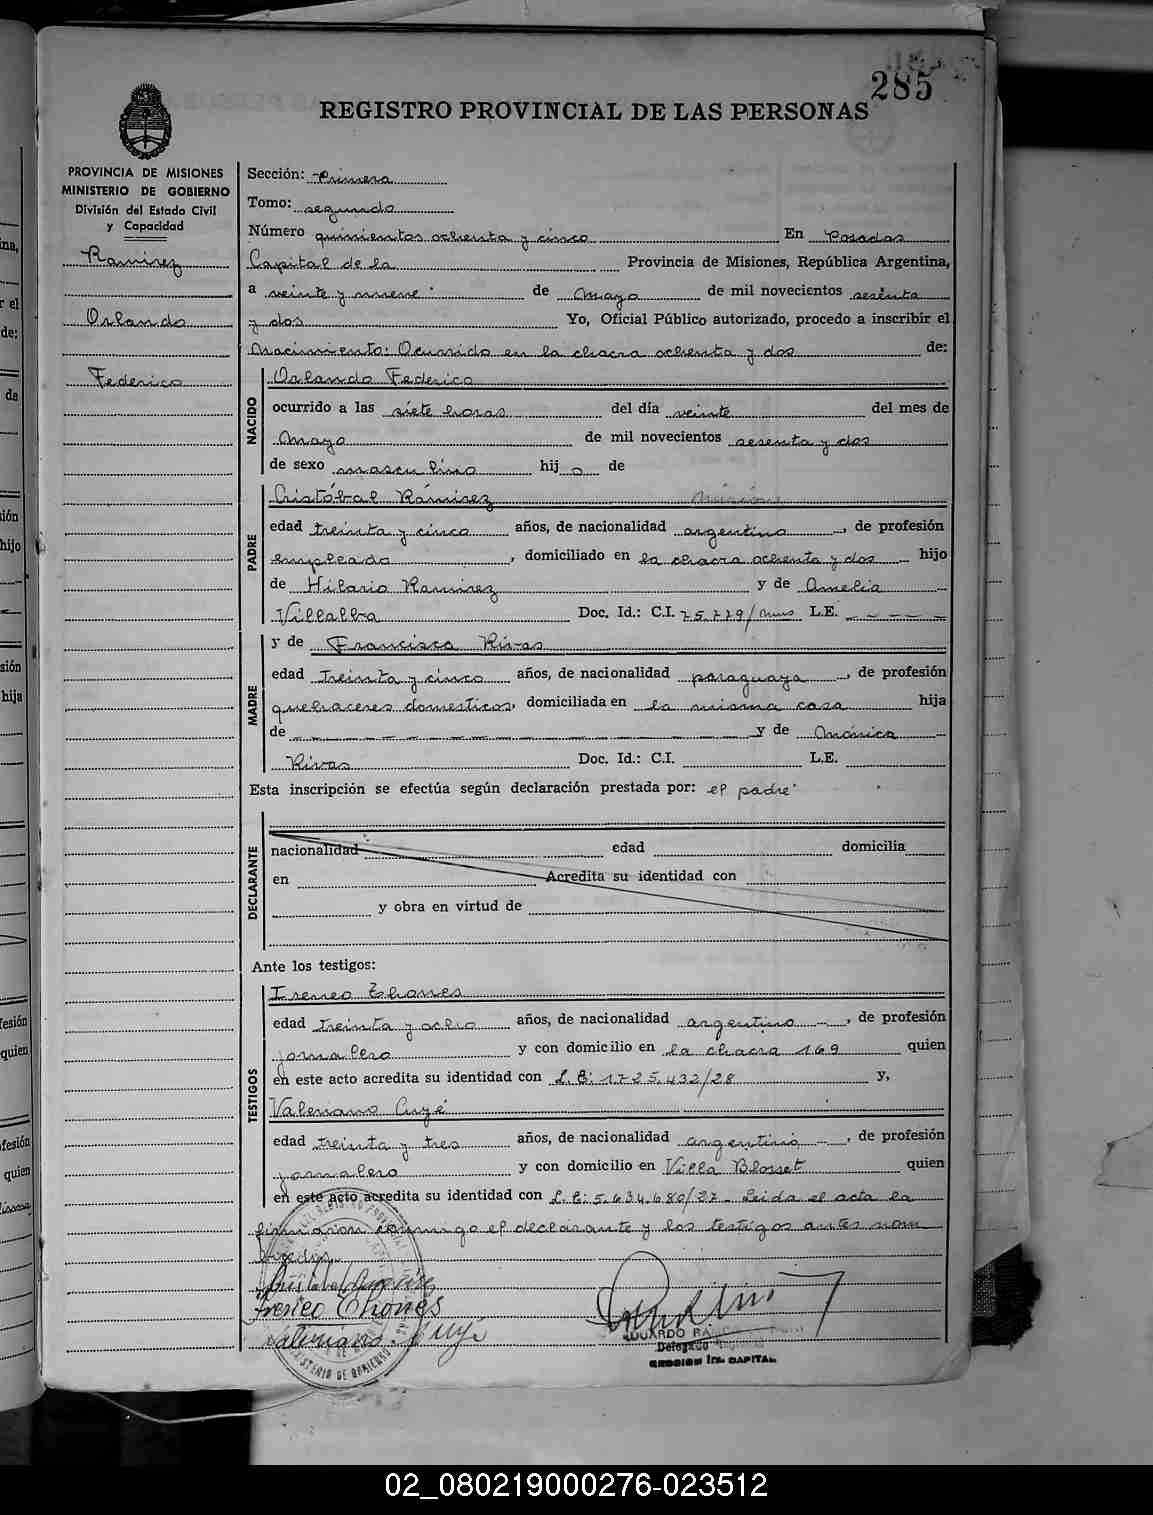 285
REGISTRO PROVINCIAL DE LAS PERSONAS
PROVINCIA DE MISIONES
MINISTERIO DE GOBIERNO
División del Estado Civil
y Capacidad
Ramirez
Orlando
Federico
Sección: Primera
Tomo: segundo
Número quinientos ochenta y cinco En Posadas
Capital de la Provincia de Misiones, República Argentina,
a veinte y nueve de Mayo de mil novecientos sesenta
y dos Yo, Oficial Público autorizado, procedo a inscribir el
Nacimiento: Ocurrido en la chacra ochenta y dos de:
NACIDO
Orlando Federico
ocurrido a las siete horas del día veinte del mes de
Mayo de mil novecientos sesenta y dos
de sexo masculino hijo de
PADRE
Cristóbal Ramirez
edad treinta y cinco años, de nacionalidad argentino, de profesión
empleado, domiciliado en la chacra ochenta y dos hijo
de Hilario Ramirez y de Amelia
Villalba Doc. Id.: C.I. 75.779/ L.E. - - - -
MADRE
y de Francisca Rivas
edad treinta y cinco años, de nacionalidad paraguaya, de profesión
quehaceres domesticos, domiciliada en la misma casa hija
de y de Mónica
Rivas Doc. Id.: C.I. L.E.
Esta inscripción se efectúa según declaración prestada por: el padre
DECLARANTE
nacionalidad edad domicilia
en Acredita su identidad con
y obra en virtud de
Ante los testigos:
TESTIGOS
Ireneo Ehorres
edad treinta y ocho años, de nacionalidad argentino, de profesión
jornalero y con domicilio en la chacra 169 quien
en este acto acredita su identidad con L.E: 1725.432/28 y,
Valeriano Cuyé
edad treinta y tres años, de nacionalidad argentino, de profesión
jornalero y con domicilio en Villa Blosset quien
en este acto acredita su identidad con L.E: 5.634.680/37 - Leida el acta la
firmaron conmigo el declarante y los testigos antes nom
brados.
Ireneo
Valeriano Cuyé
EDUARDO
Delegado
SECCION 1ra. CAPITAL
MINISTERIO DE GOBIERNO
02_080219000276-023512